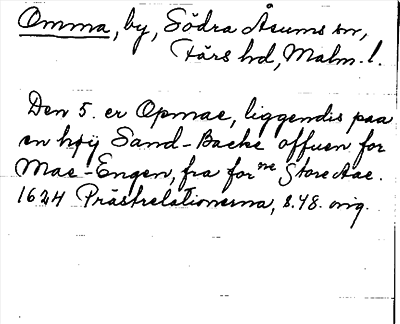 Omma, by, Södra Åsums sn,
Färs hd, Malm. l.
Den 5. er Opmae, liggendis paa
en høy Sand-Backe offuen for
Mae-Engen, fra for ne Store Aae.
1624 Prästrelationerna, s. 48. orig.